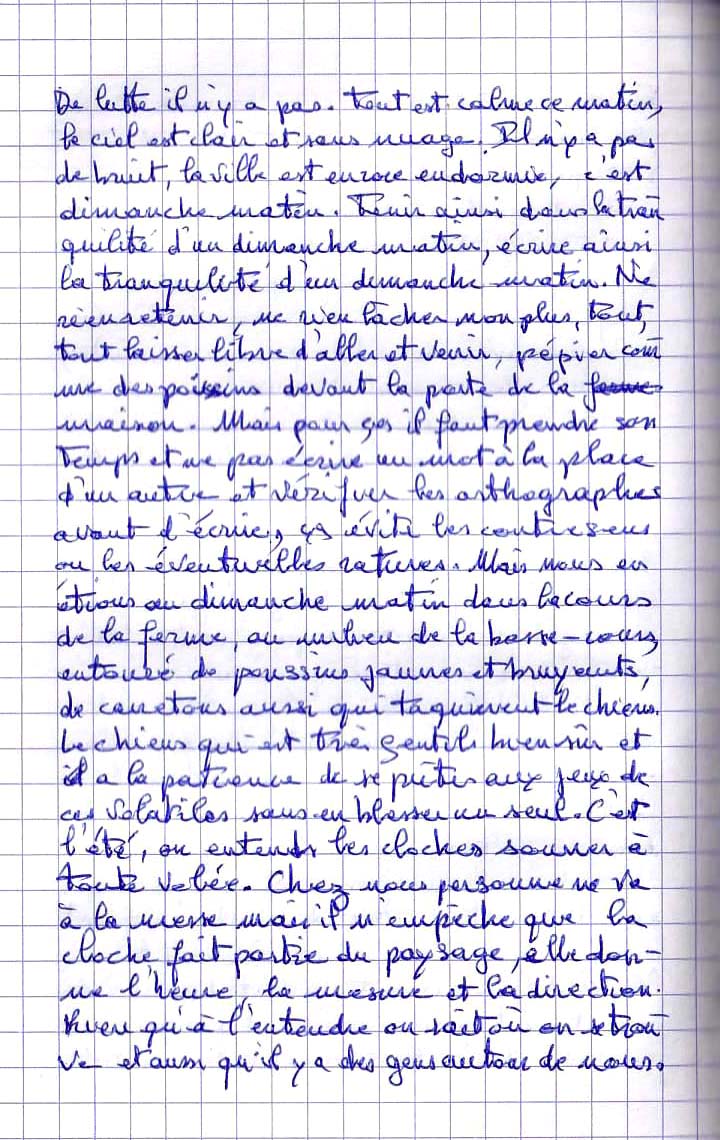 De lutte il n'y a pas. Tout est calme ce matin,
le ciel est clair et sans nuage. Il n'y a pas
de bruit, la ville est encore endormie, c'est
dimanche matin. Tenir ainsi dans la tran
quilité d'un dimanche matin, écrire ainsi
la tranquilité d'un dimanche matin. Ne
rien retenir, ne rien lâcher non plus, tout,
tout laisser libre d'aller et venir, pépier com
me des poissins devant la porte de la
maison. Mais pour ça il faut prendre son
temps et ne pas écrire un mot à la place
d'un autre et vérifier les orthographes
avant d'écrire, ça évite les contresens
ou les éventuelles ratures. Mais nous en
étions au dimanche matin dans la cours
de la ferme, au milieu de la basse-cours,
entouré de poussins jaunes et bruyants,
de canetons aussi qui taquinent le chiens.
Le chiens qui est très gentils bien sûr et
il a la patience de se prêter aux jeux de
ces volatiles sans en blesser un seul. C'est
l'été, on entends les cloches sonner à
toute volée. Chez nous personne ne va
à la messe mais il n'empêche que la
cloche fait partie du paysage, elle don-
ne l'heure, la mesure et la direction.
Rien qu'à l'entendre on sait où on se trou
ve et aussi qu'il y a des gens autour de nous.